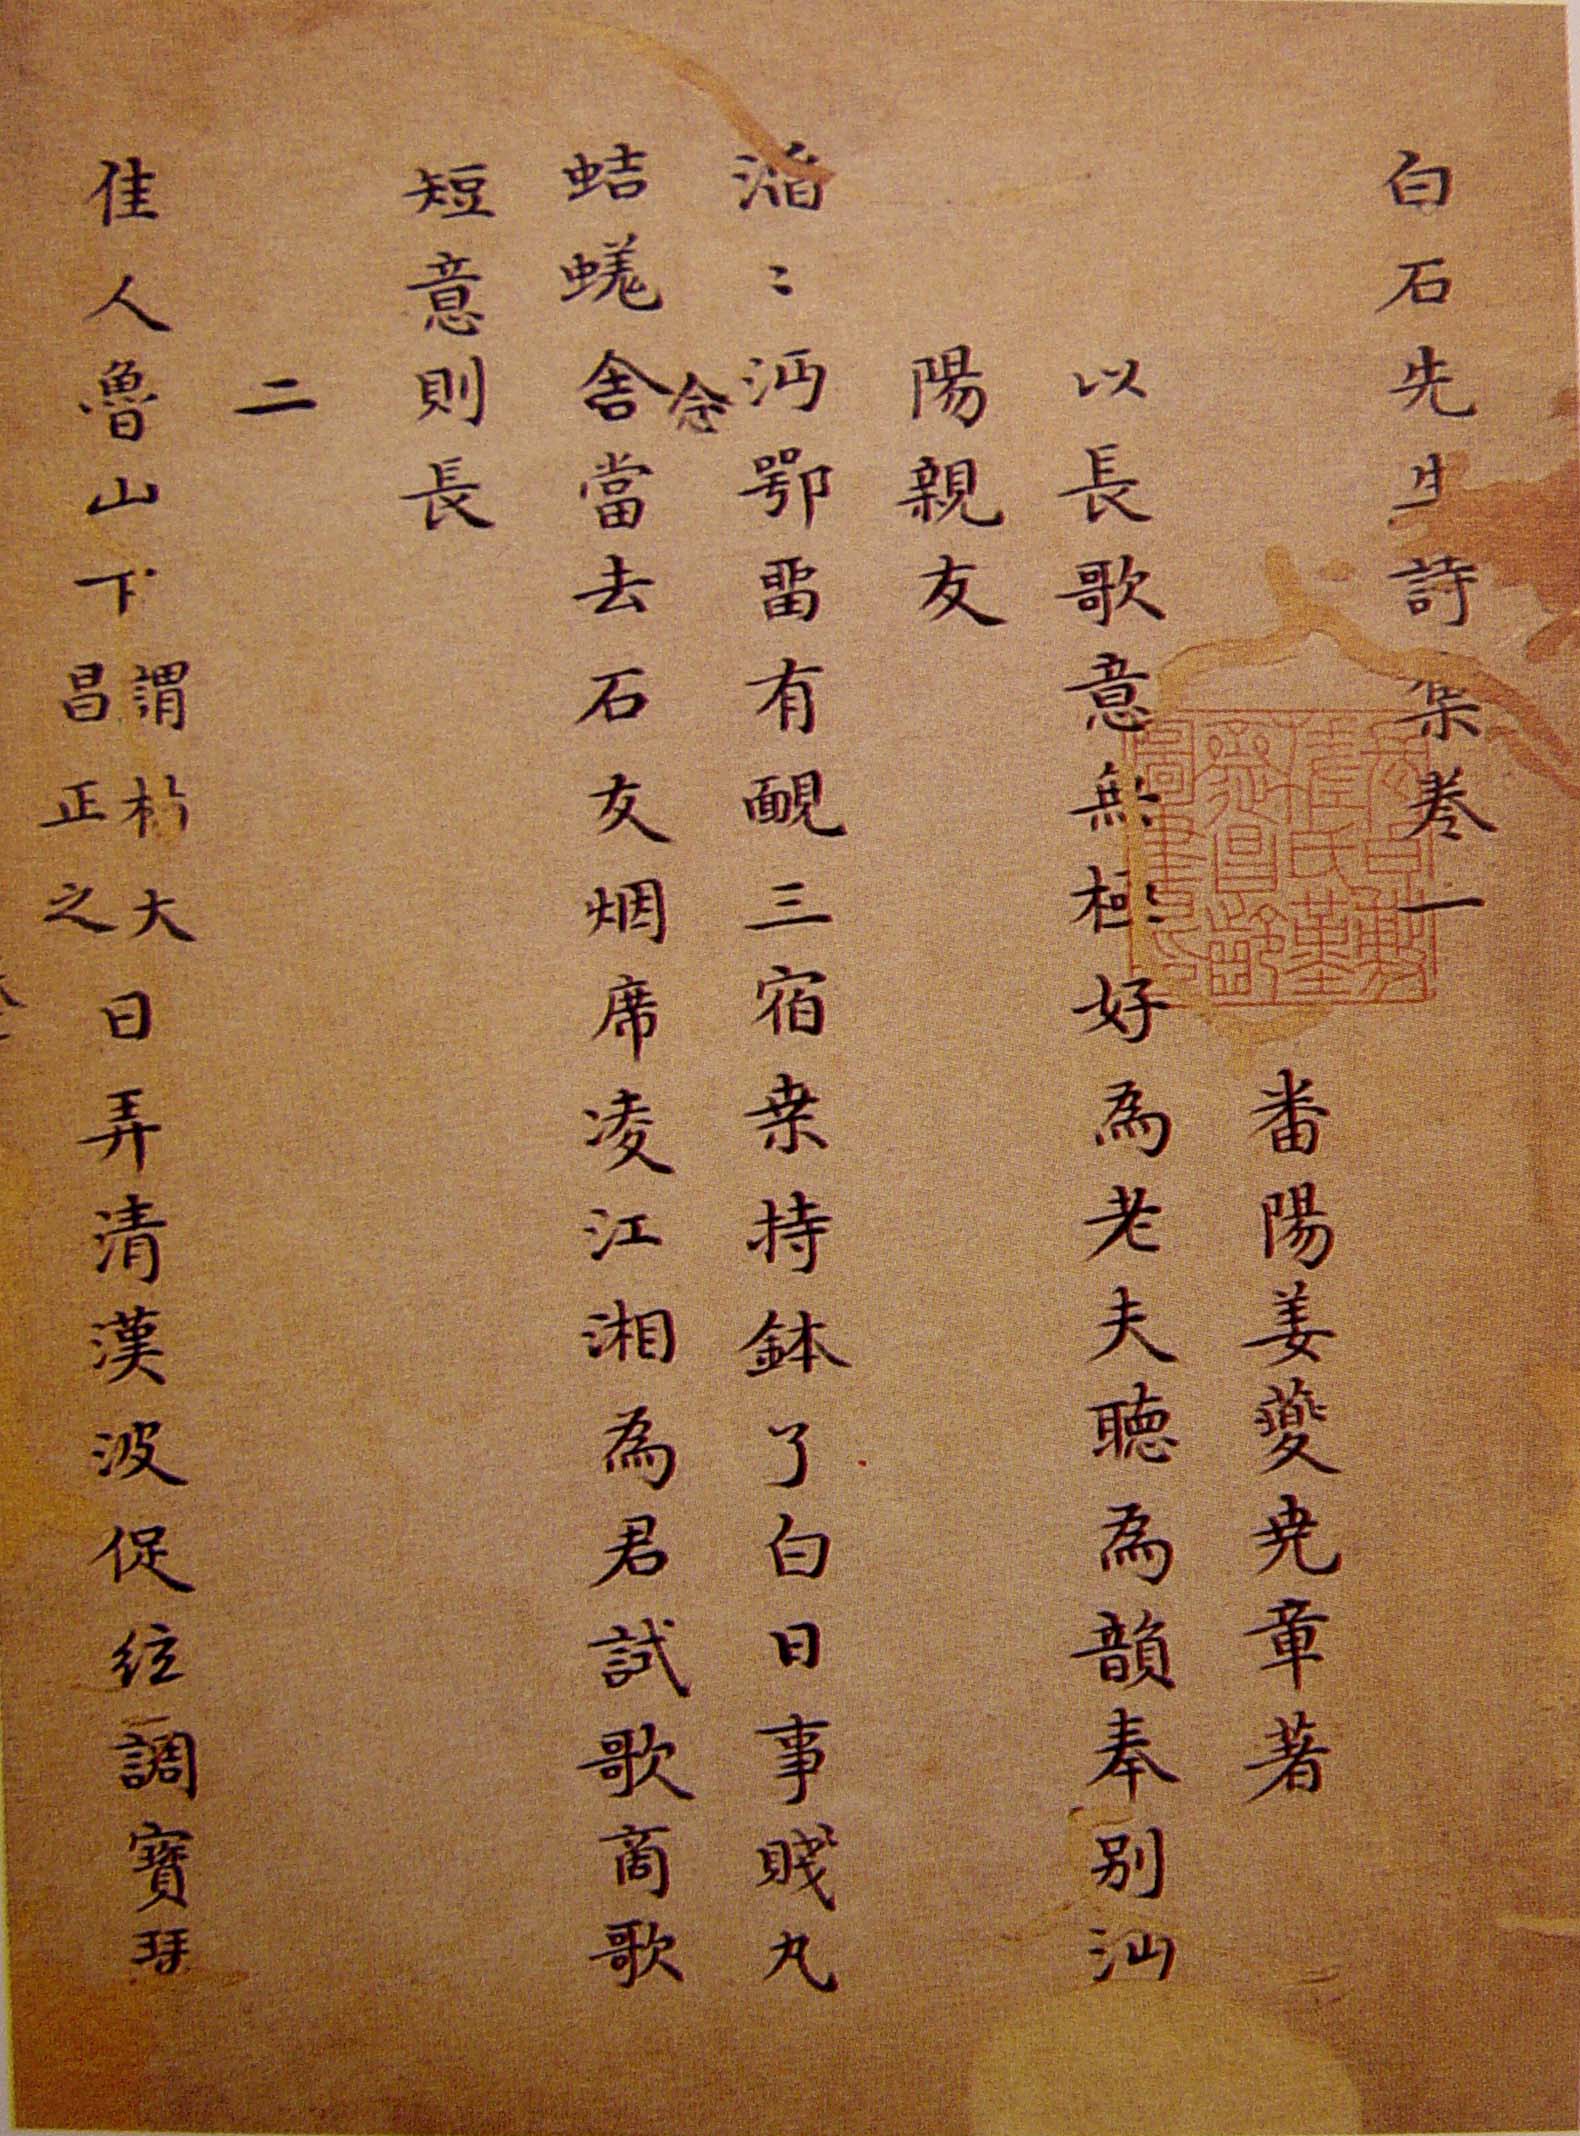 白石先生詩集卷一
番陽姜夔尭章著
以長歌意無極好為老夫聴為韻奉別沔
陽親友
滔〻沔鄂留有靦三宿桒持鉢了白日事賤丸
蛣蜣舎當去石友烟席凌江湘為君試歌商歌
念
短意則長
二
佳人魯山下
謂杓大
昌正之
日弄清漢波促絃調寶瑟